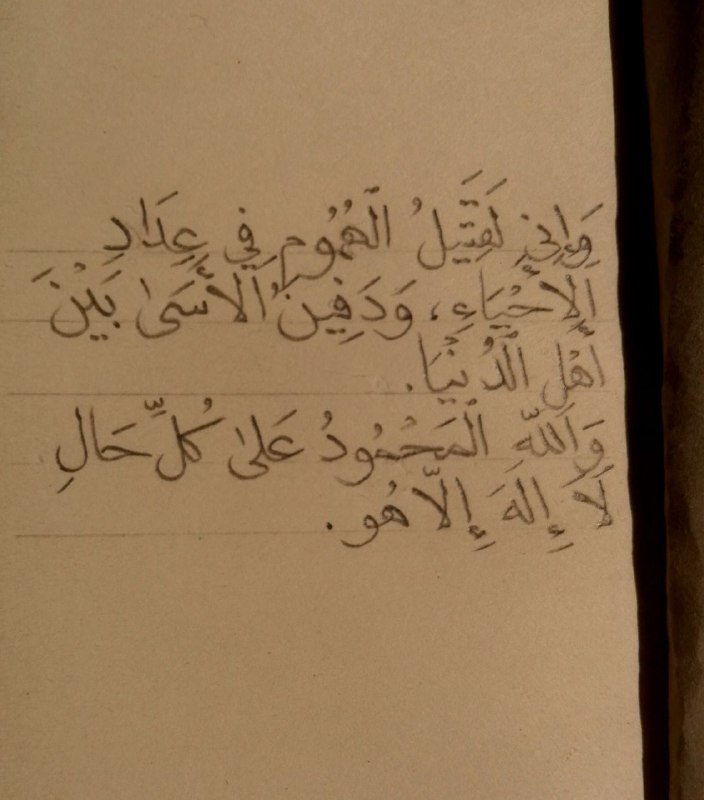 وَإِنِّي لَقَتِيلُ الْهُمُومِ فِي عِدَادِ
الْأَحْيَاءِ، وَدَفِينُ الْأَسَىٰ بَيْنَ
أَهْلِ الْدُنْيَا.
وَاللّٰهِ الْمَحْمُودُ عَلىٰ كُلِّ حَالٍ
لَا إِلَهَ إِلَّا هُو.